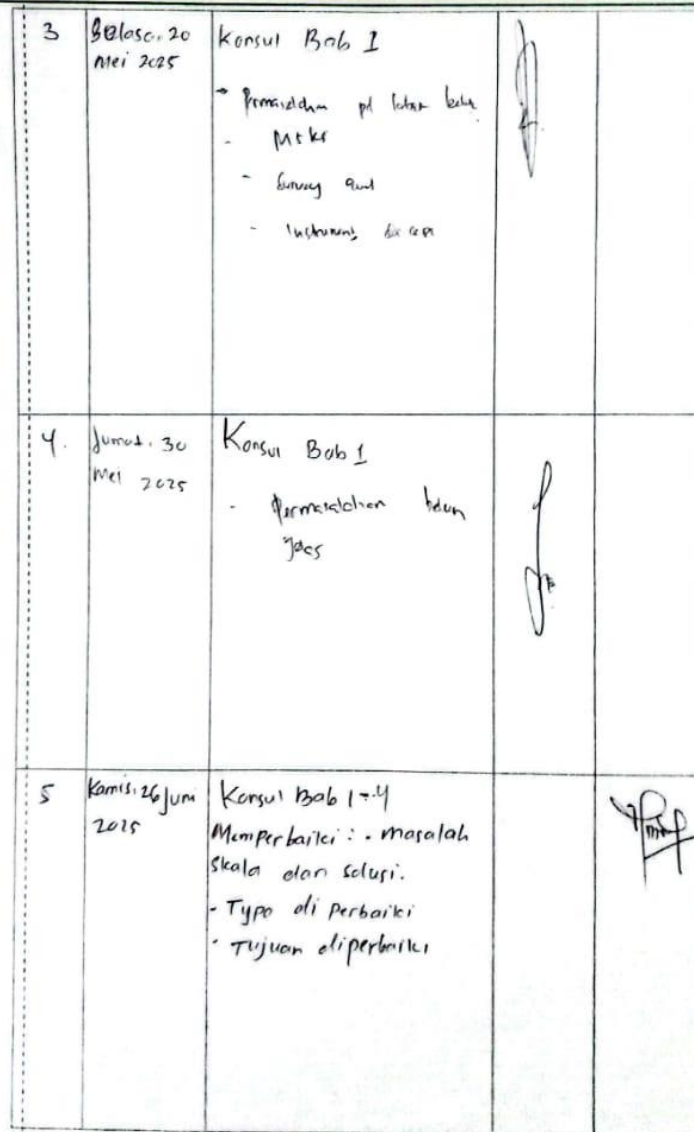 3
Selasa, 20
Mei 2025
Konsul Bab I
pd latar
- Survey awal
- Instrument
4.
Jumat, 30
Mei 2025
Konsul Bab 1
- Permasalahan belum
jelas
5
Kamis, 26 Juni
2025
Konsul Bab 1-4
Memperbaiki : - masalah
skala dan solusi.
- Typo di perbaiki
- Tujuan diperbaiki